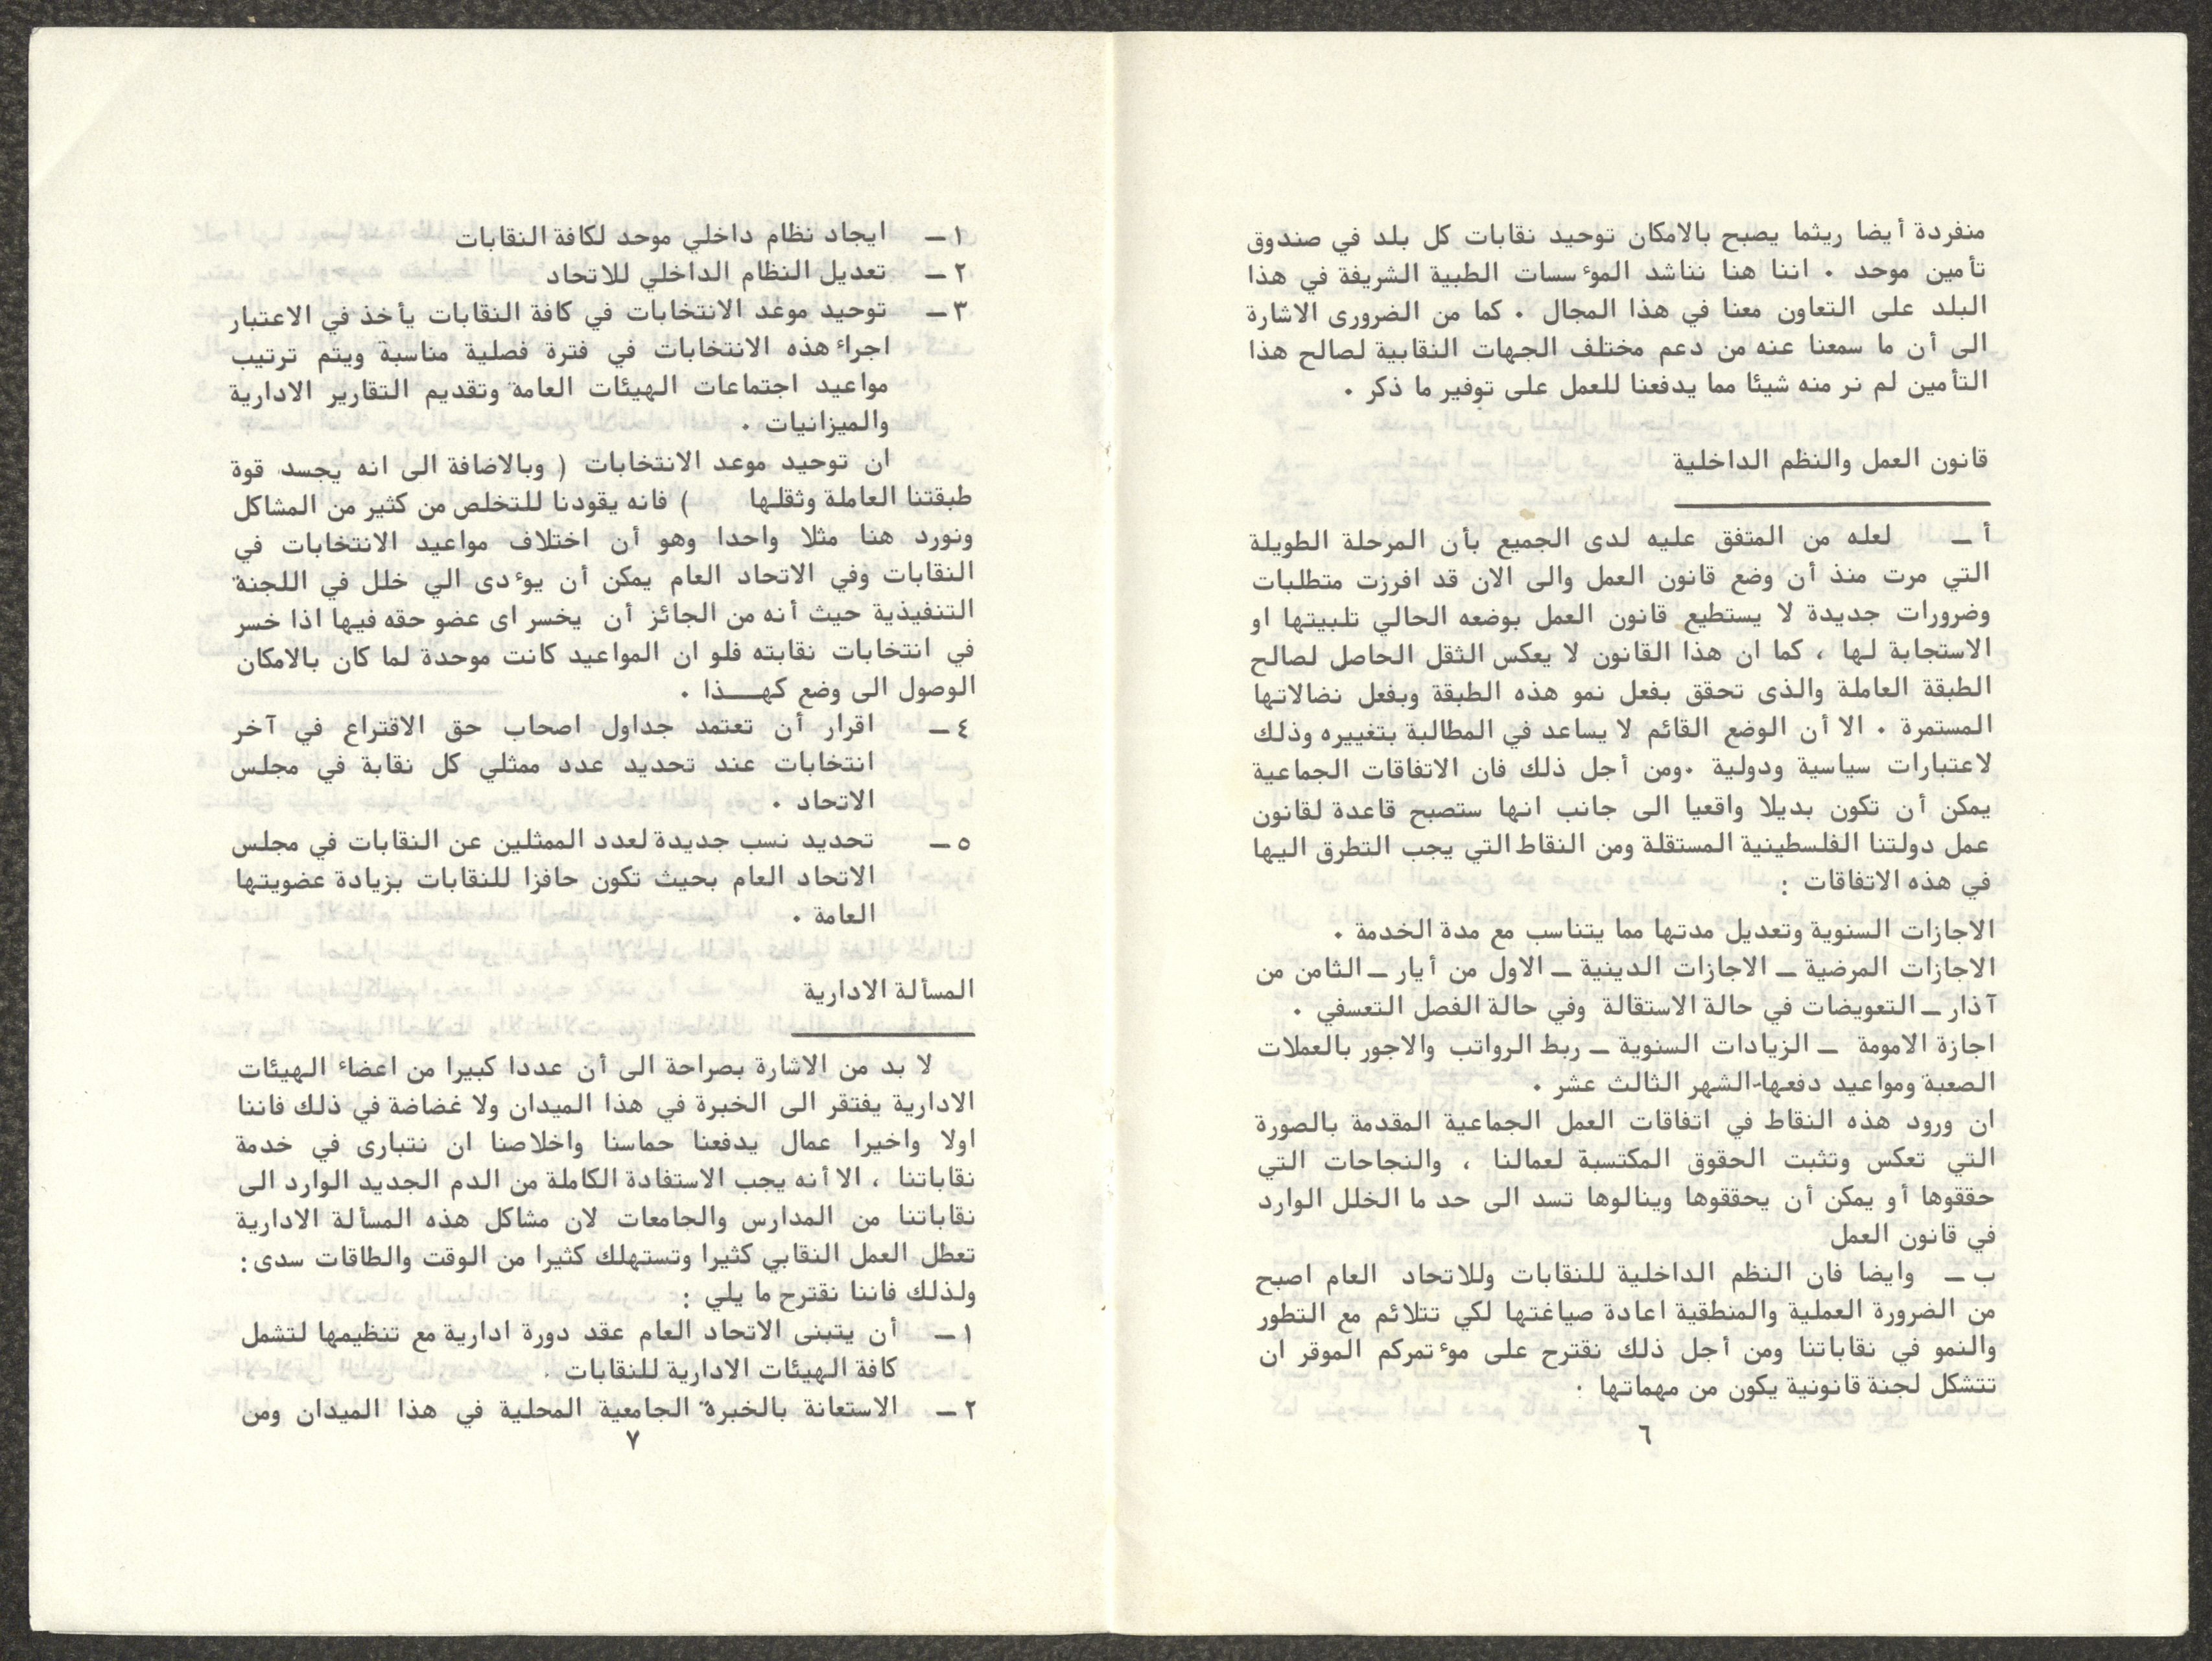 منفردة أيضا ريثما يصبح بالامكان توحيد نقابات كل بلد في صندوق
تأمين موحد . اننا هنا نناشد المؤسسات الطبية الشريفة في هذا
البلد على التعاون معنا في هذا المجال . كما من الضرورى الاشارة
الى أن ما سمعنا عنه من دعم مختلف الجهات النقابية لصالح هذا
التأمين لم نر منه شيئا مما يدفعنا للعمل على توفير ما ذكر .
قانون العمل والنظم الداخلية
أ – لعله من المتفق عليه لدى الجميع بأن المرحلة الطويلة
التي مرت منذ أن وضع قانون العمل والى الان قد افرزت متطلبات
وضرورات جديدة لا يستطيع قانون العمل بوضعه الحالي تلبيتها او
الاستجابة لها ، كما ان هذا القانون لا يعكس الثقل الحاصل لصالح
الطبقة العاملة والذى تحقق بفعل نمو هذه الطبقة وبفعل نضالاتها
المستمرة . الا أن الوضع القائم لا يساعد في المطالبة بتغييره وذلك
لاعتبارات سياسية ودولية .ومن أجل ذلك فان الاتفاقات الجماعية
يمكن أن تكون بديلا واقعيا الى جانب انها ستصبح قاعدة لقانون
عمل دولتنا الفلسطينية المستقلة ومن النقاط التي يجب التطرق اليها
في هذه الاتفاقات :
الاجازات السنوية وتعديل مدتها مما يتناسب مع مدة الخدمة .
الاجازات المرضية – الاجازات الدينية – الاول من أيار – الثامن من
آذار – التعويضات في حالة الاستقالة وفي حالة الفصل التعسفي .
اجازة الامومة – الزيادات السنوية – ربط الرواتب والاجور بالعملات
الصعبة ومواعيد دفعها-الشهر الثالث عشر .
ان ورود هذه النقاط في اتفاقات العمل الجماعية المقدمة بالصورة
التي تعكس وتثبت الحقوق المكتسبة لعمالنا ، والنجاحات التي
حققوها أو يمكن أن يحققوها وينالوها تسد الى حد ما الخلل الوارد
في قانون العمل
ب – وايضا فان النظم الداخلية للنقابات وللاتحاد العام اصبح
من الضرورة العملية والمنطقية اعادة صياغتها لكي تتلائم مع التطور
والنمو في نقاباتنا ومن أجل ذلك نقترح على مؤتمركم الموقر ان
تتشكل لجنة قانونية يكون من مهماتها :
٦
١ – ايجاد نظام داخلي موحد لكافة النقابات
٢ – تعديل النظام الداخلي للاتحاد
٣ – توحيد موعد الانتخابات في كافة النقابات يأخذ في الاعتبار
اجراء هذه الانتخابات في فترة فصلية مناسبة ويتم ترتيب
مواعيد اجتماعات الهيئات العامة وتقديم التقارير الادارية
والميزانيات .
ان توحيد موعد الانتخابات ( وبالاضافة الى انه يجسد قوة
طبقتنا العاملة وثقلها ) فانه يقودنا للتخلص من كثير من المشاكل
ونورد هنا مثلا واحدا وهو أن اختلاف مواعيد الانتخابات في
النقابات وفي الاتحاد العام يمكن أن يؤدى الي خلل في اللجنة
التنفيذية حيث أنه من الجائز أن يخسر اى عضو حقه فيها اذا خسر
في انتخابات نقابته فلو ان المواعيد كانت موحدة لما كان بالامكان
الوصول الى وضع كهـــذا .
٤ – اقرار أن تعتمد جداول اصحاب حق الاقتراع في آخر
انتخابات عند تحديد عدد ممثلي كل نقابة في مجلس
الاتحاد .
٥ – تحديد نسب جديدة لعدد الممثلين عن النقابات في مجلس
الاتحاد العام بحيث تكون حافزا للنقابات بزيادة عضويتها
العامة .
المسألة الادارية
لا بد من الاشارة بصراحة الى أن عددا كبيرا من اعضاء الهيئات
الادارية يفتقر الى الخبرة في هذا الميدان ولا غضاضة في ذلك فاننا
اولا واخيرا عمال يدفعنا حماسنا واخلاصنا ان نتبارى في خدمة
نقاباتنا ، الا أنه يجب الاستفادة الكاملة من الدم الجديد الوارد الى
نقاباتنا من المدارس والجامعات لان مشاكل هذه المسألة الادارية
تعطل العمل النقابي كثيرا وتستهلك كثيرا من الوقت والطاقات سدى :
ولذلك فاننا نقترح ما يلي :
١ – أن يتبنى الاتحاد العام عقد دورة ادارية مع تنظيمها لتشمل
كافة الهيئات الادارية للنقابات .
٢ – الاستعانة بالخبرة الجامعية المحلية في هذا الميدان ومن
٧